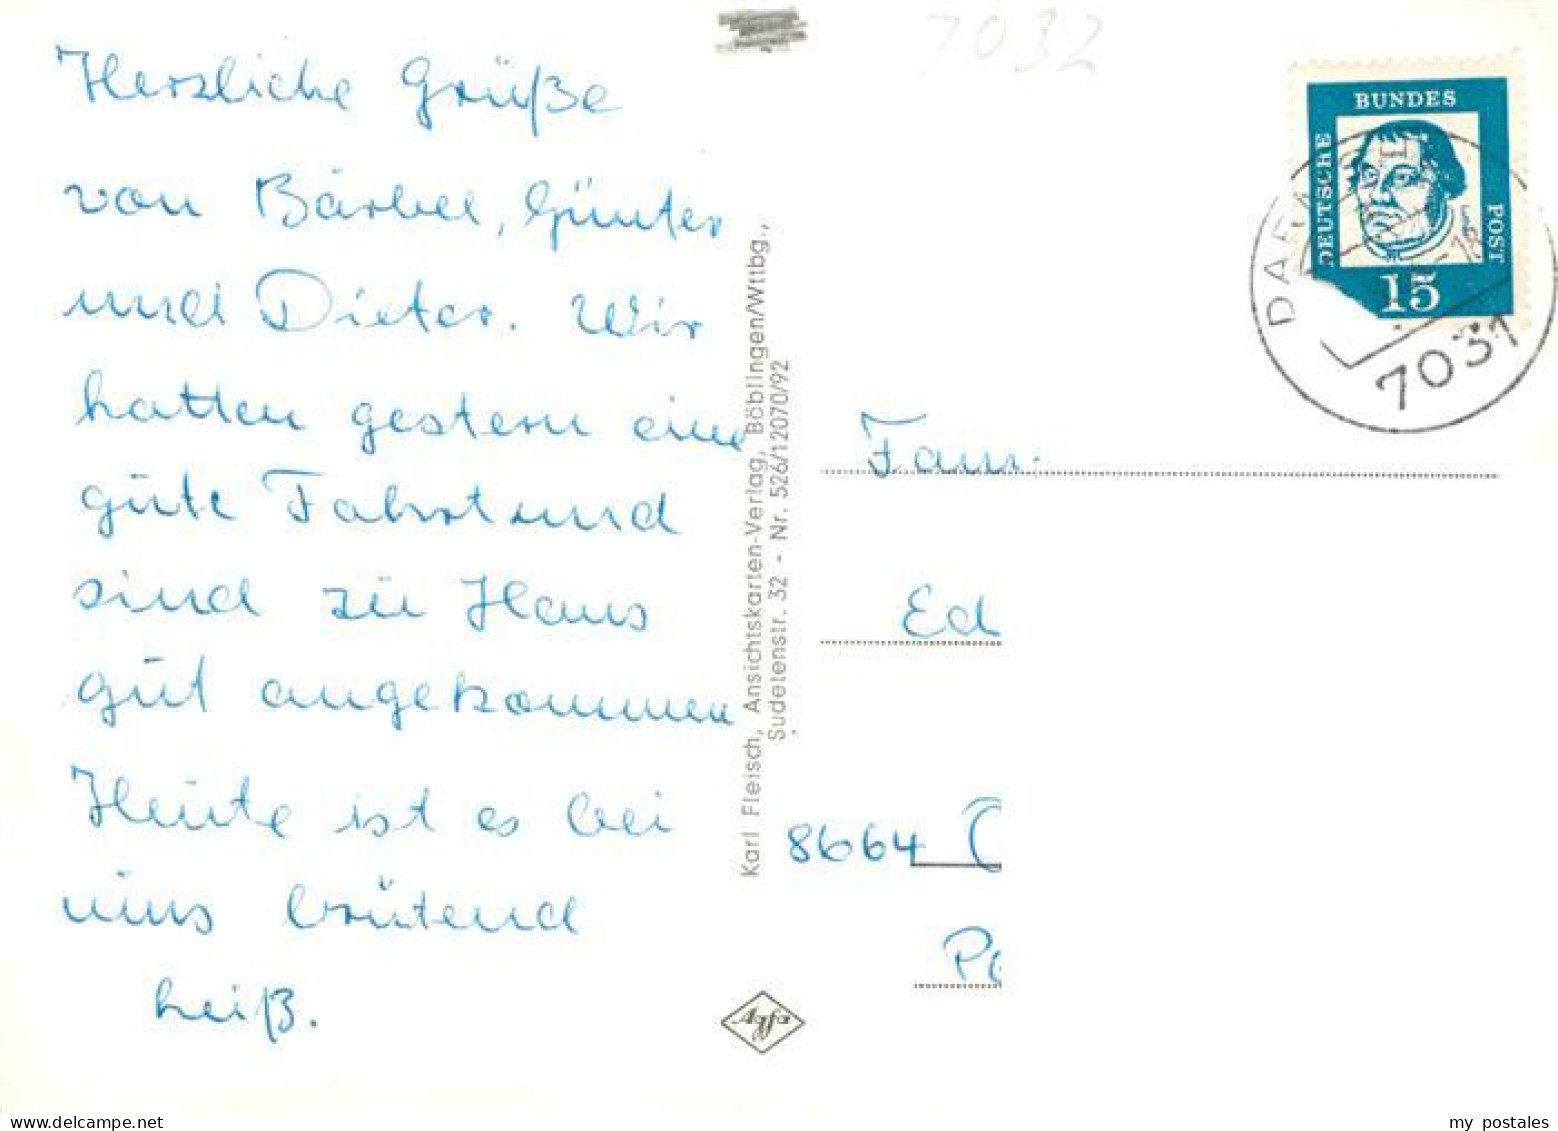 Herzliche Grüße
von Bärbel, Günter
und Dieter. Wir
hatten gestern eine
gute Fahrt und
sind zu Haus
gut angekommen
Heute ist es bei
uns brütend
heiß.
Karl Fleisch, Ansichtskarten-Verlag, Böblingen/Wttbg.,
Sudetenstr. 32 - Nr. 526/12070/92
Agfa
7032
BUNDES
DEUTSCHE
POST
15
7031
Fam.
Ed
8664
my postales